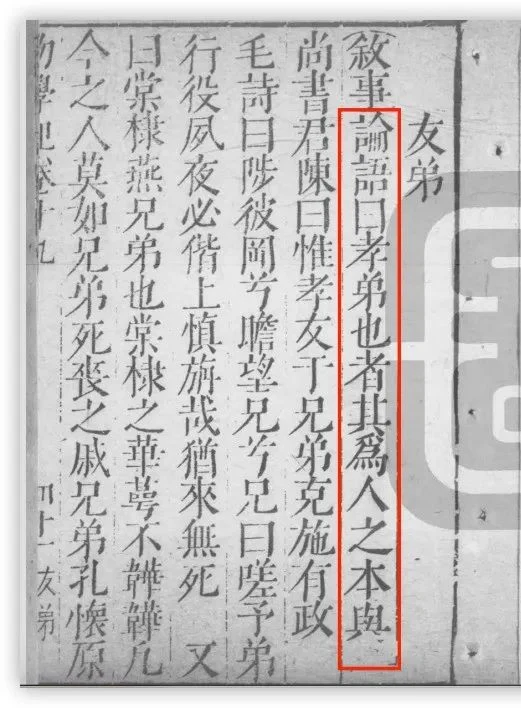 友弟
敘事論語曰孝弟也者其爲人之本與
尚書君陳曰惟孝友于兄弟克施有政
毛詩曰陟彼岡兮瞻望兄兮兄曰嗟予弟
行役夙夜必偕上慎旃哉猶來無死 又
曰棠棣燕兄弟也棠棣之華萼不韡韡凡
今之人莫如兄弟死喪之戚兄弟孔懷原
學記卷十九 四十一 友弟